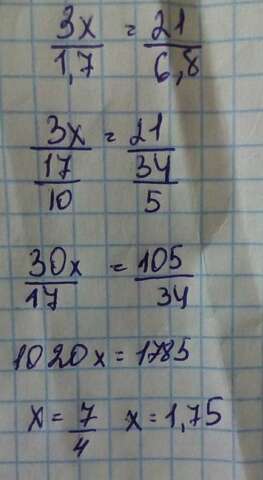 3x/1,7 = 21/6,8
3x/(17/10) = 21/(34/5)
30x/17 = 105/34
1020x = 1785
x = 7/4 x = 1,75